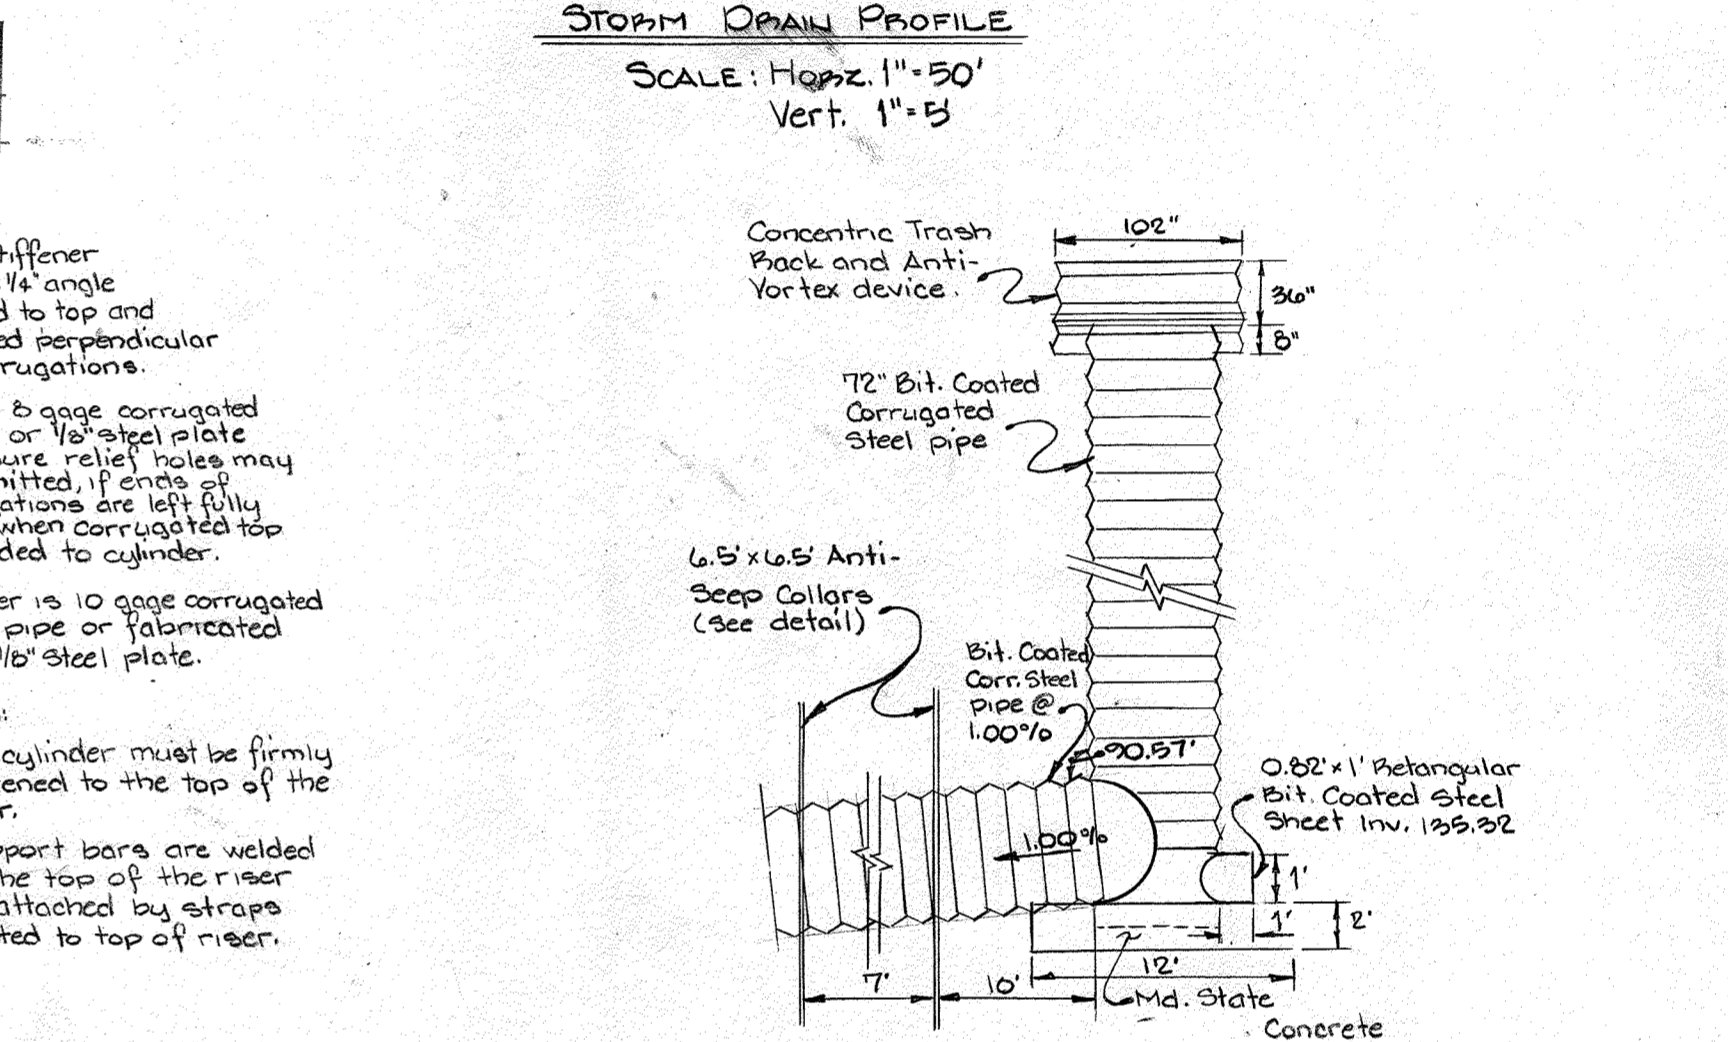 STORM DRAIN PROFILE
SCALE: Horz. 1"=50'
Vert. 1"=5'
tiffener
1/4" angle
d to top and
ed perpendicular
rugations.
8 gage corrugated
or 1/8" steel plate
ure relief holes may
mitted, if ends of
ations are left fully
when corrugated top
ded to cylinder.
er is 10 gage corrugated
pipe or fabricated
1/8" steel plate.
:
cylinder must be firmly
ened to the top of the
r.
port bars are welded
he top of the riser
attached by straps
ted to top of riser.
Concentric Trash
Rack and Anti-
Vortex device.
102"
36"
8"
72" Bit. Coated
Corrugated
Steel pipe
6.5' x 6.5' Anti-
Seep Collars
(see detail)
Bit. Coated
Corr. Steel
pipe @
1.00%
90.57'
1.00%
0.82' x 1' Retangular
Bit. Coated Steel
Sheet Inv. 135.32
1'
1'
2'
12'
7'
10'
Md. State
Concrete